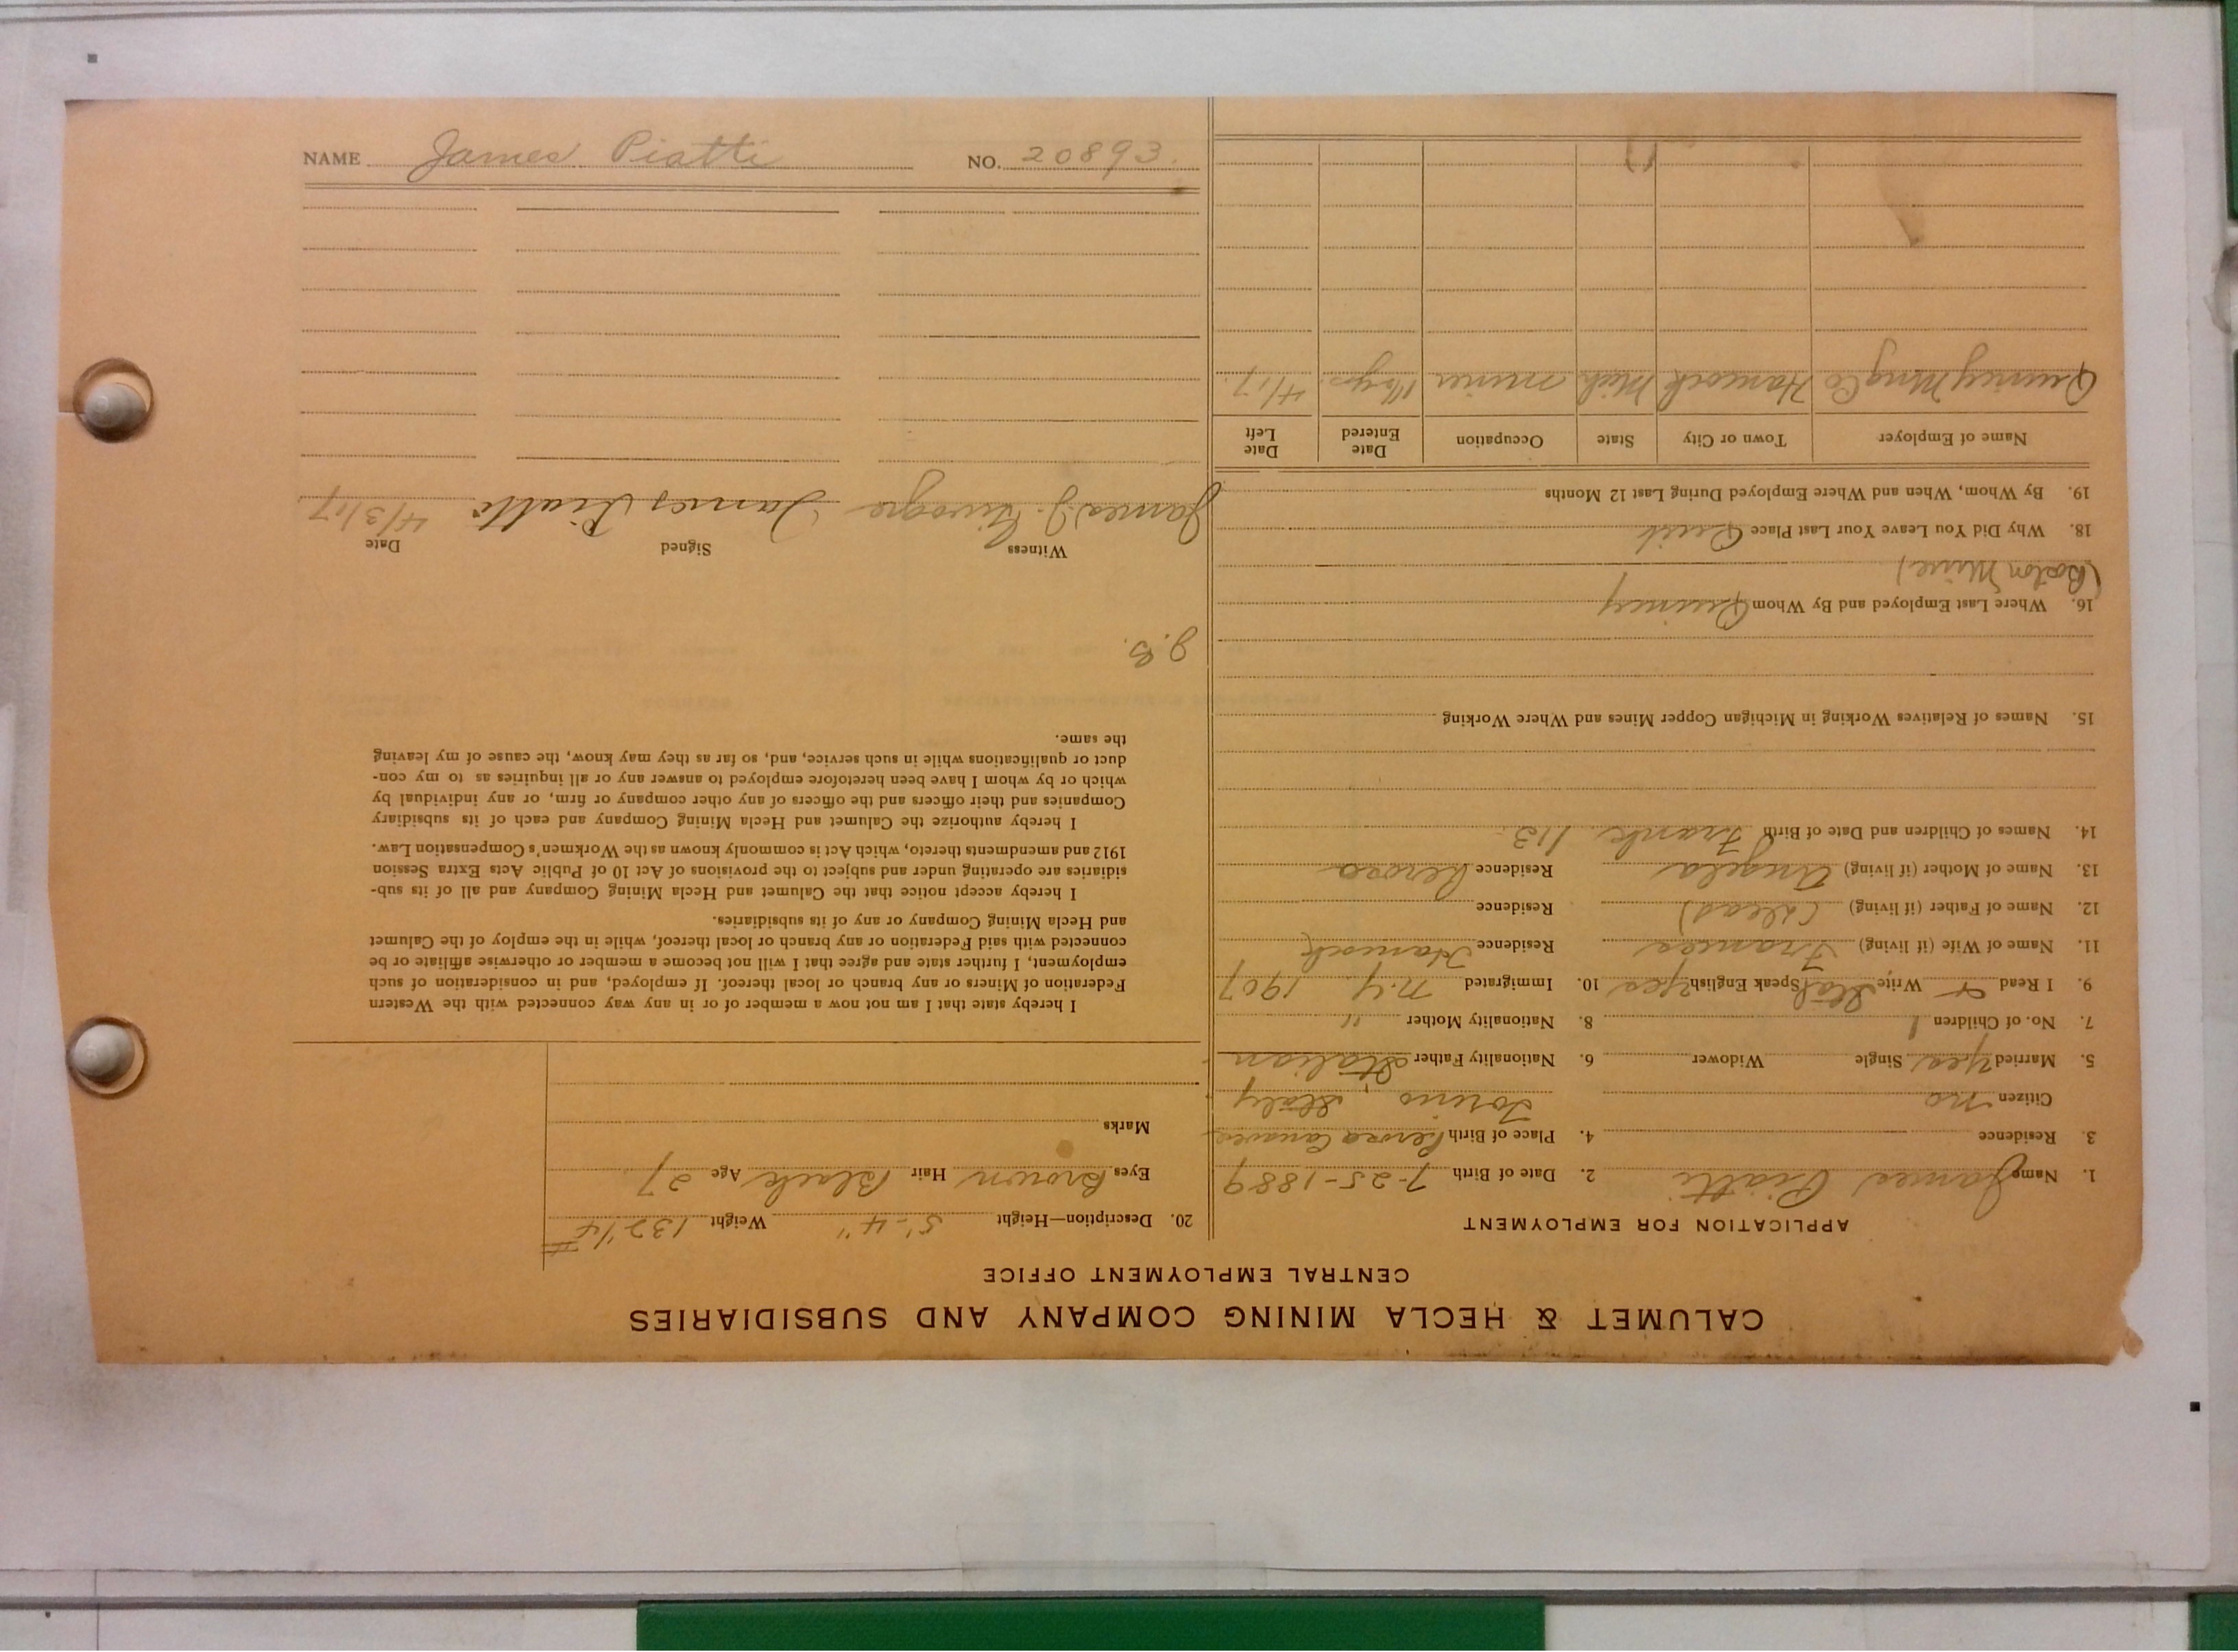 CALUMET & HECLA MINING COMPANY AND SUBSIDIARIES
CENTRAL EMPLOYMENT OFFICE
APPLICATION FOR EMPLOYMENT
1. Name James Piatti 2. Date of Birth 7-25-1889
3. Residence 4. Place of Birth
Citizen no Torino, Italy
5. Married yes Single Widower 6. Nationality Father Italian
7. No. of Children 1 8. Nationality Mother "
9. I Read Write Ital Speak English yes 10. Immigrated N.Y. 1907
11. Name of Wife (if living) Frances Residence Hancock
12. Name of Father (if living) (dead) Residence
13. Name of Mother (if living) Angela Residence
14. Names of Children and Date of Birth Frank
15. Names of Relatives Working in Michigan Copper Mines and Where Working
16. Where Last Employed and By Whom Quincy
(Boston Mine)
18. Why Did You Leave Your Last Place Quit
19. By Whom, When and Where Employed During Last 12 Months
Name of Employer Town or City State Occupation Date Entered Date Left
Quincy Mng Co Hancock Mich miner 4/17.
20. Description—Height 5'-4" Weight 132 1/4 #
Eyes Brown Hair Black Age 27
Marks
I hereby state that I am not now a member of or in any way connected with the Western
Federation of Miners or any branch or local thereof. If employed, and in consideration of such
employment, I further state and agree that I will not become a member or otherwise affiliate or be
connected with said Federation or any branch or local thereof, while in the employ of the Calumet
and Hecla Mining Company or any of its subsidiaries.
I hereby accept notice that the Calumet and Hecla Mining Company and all of its sub-
sidiaries are operating under and subject to the provisions of Act 10 of Public Acts Extra Session
1912 and amendments thereto, which Act is commonly known as the Workmen's Compensation Law.
I hereby authorize the Calumet and Hecla Mining Company and each of its subsidiary
Companies and their officers and the officers of any other company or firm, or any individual by
which or by whom I have been heretofore employed to answer any or all inquiries as to my con-
duct or qualifications while in such service, and, so far as they may know, the cause of my leaving
the same.
J.G.
Witness Signed Date
James J. James Piatti 4/3/17
NAME James Piatti NO. 20893.